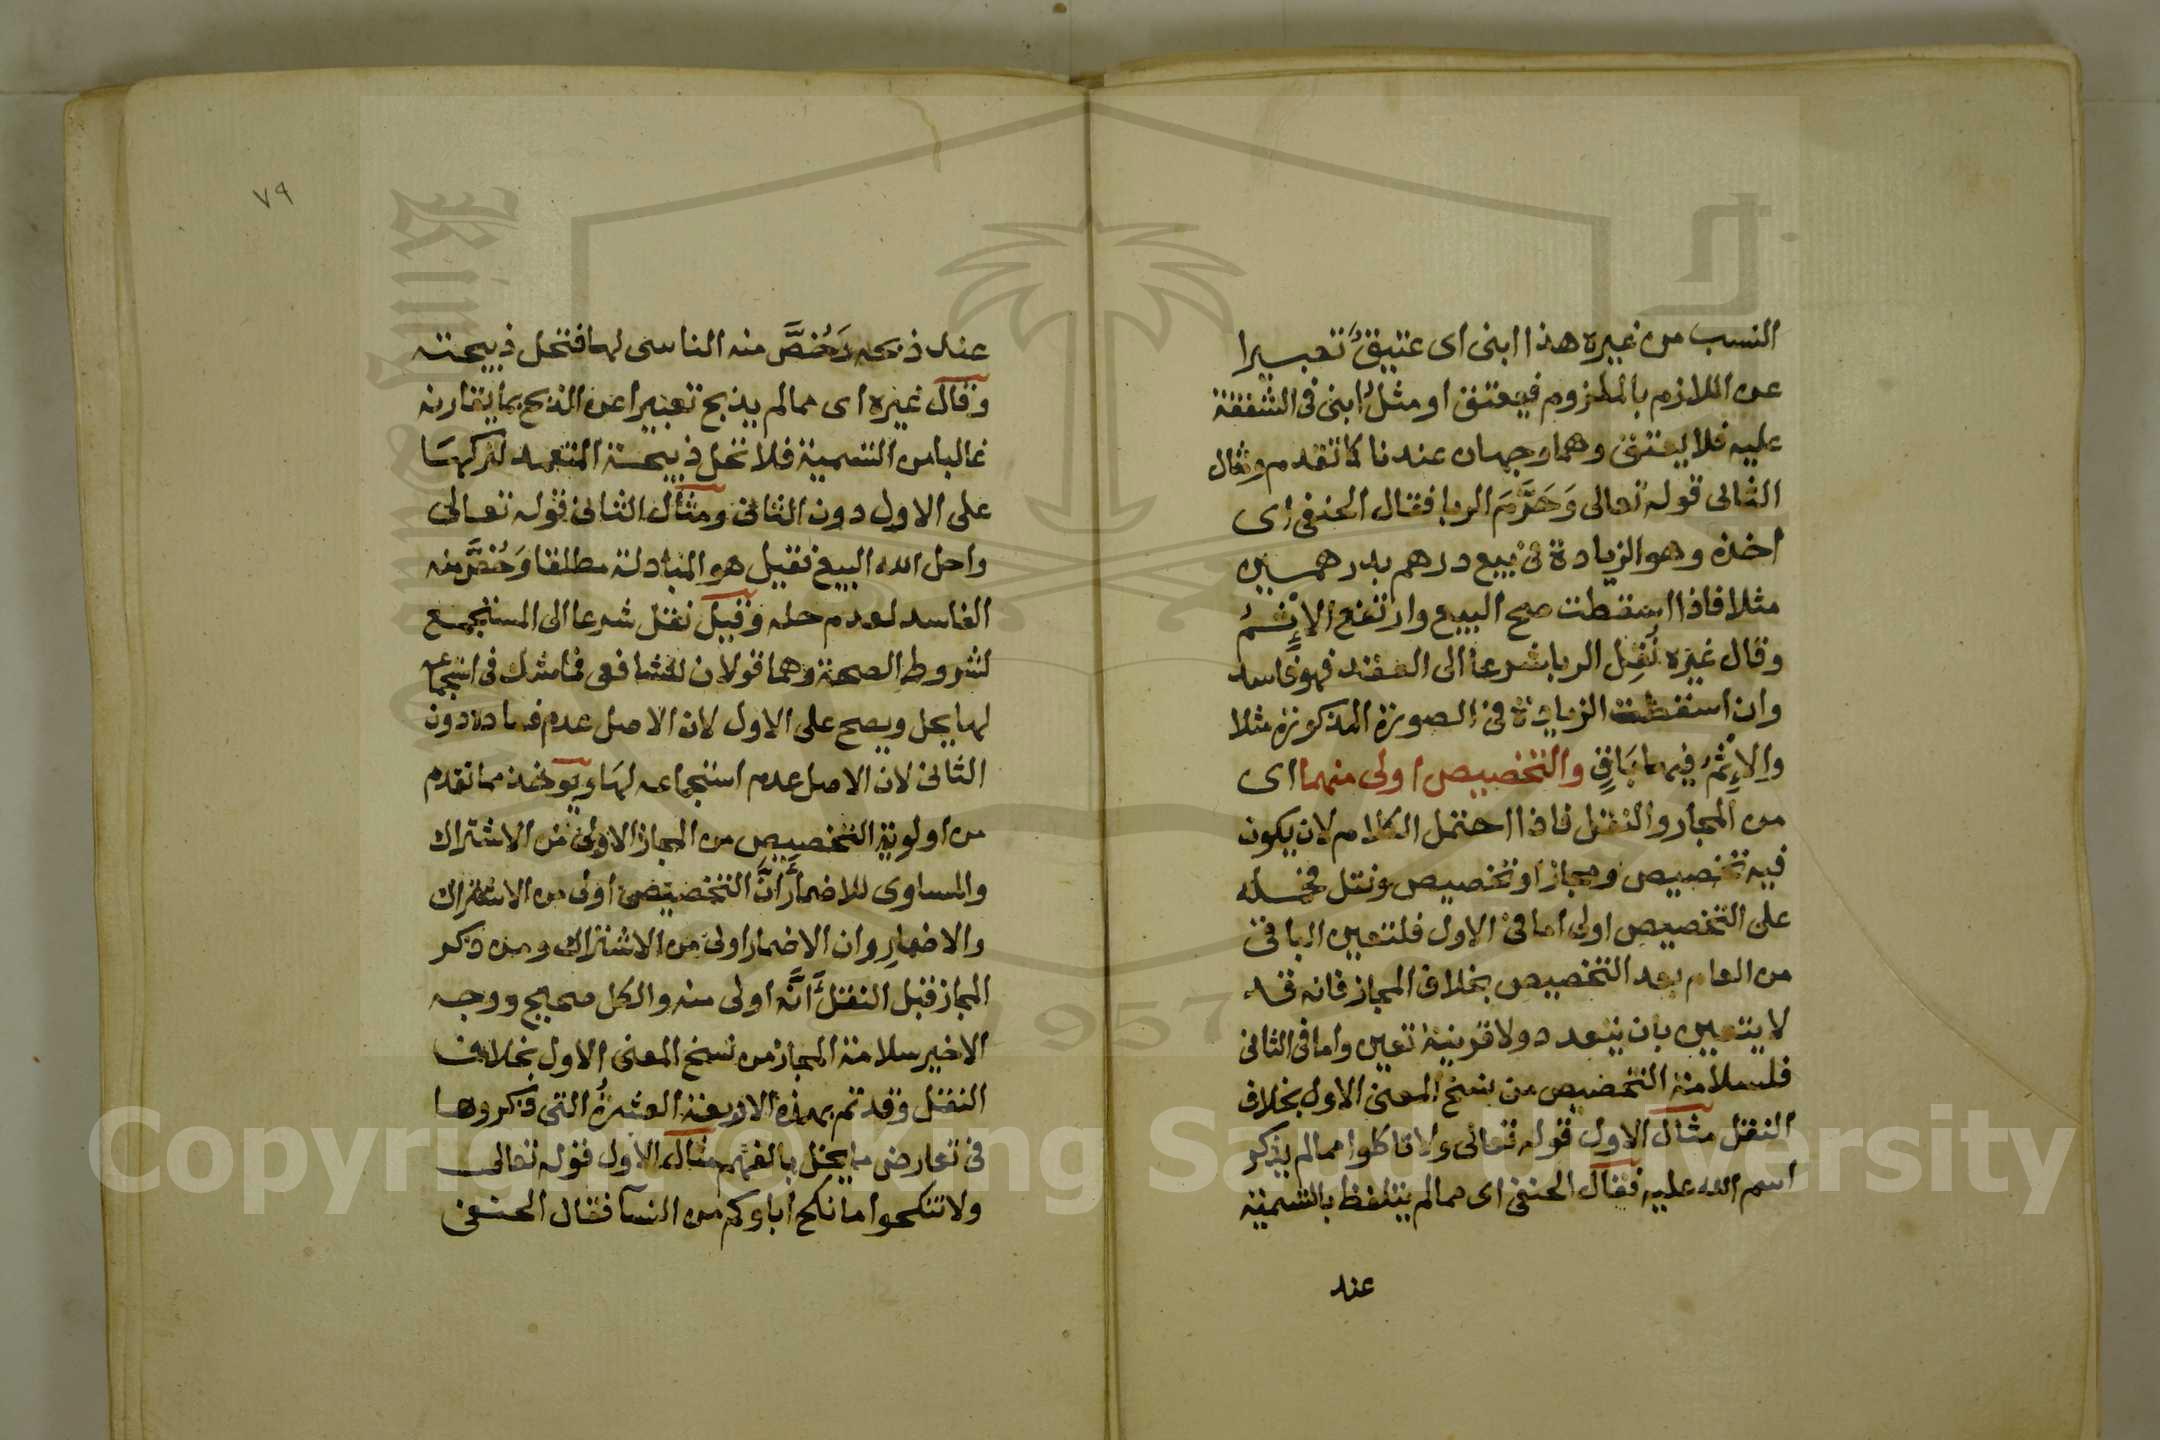 النسب من غيره هذا ابنى اى عتيقٌ تعبيرا
عن اللازم بالملزوم فيعتق او مثلُ ابنى فى الشفقة
عليه فلا يعتق وهما وجهان عندنا كما تقدم ومثال
الثانى قوله تعالى وَحَرَّمَ الربا فقال الحنفى اى
اخذه وهو الزيادة فى بيع درهم بدرهمين
مثلا فاذا اسقطت صح البيع وارتفع الاِثمُ
وقال غيره نُقِل الربا شرعا الى العقد فهو فاسد
وان اسقطت الزيادة فى الصورة المذكورة مثلا
والاِثمُ فيها بَاقٍ والتخصيص اولى منهما اى
من المجاز والنقل فاذا احتمل الكلام لان يكون
فيه تخصيص ومجاز او تخصيص ونقل فحمله
على التخصيص اولى اما فى الاول فلتعين الباقى
من العام بعد التخصيص بخلاف المجاز فانه قد
لا يتعين بان يتعدد ولا قرينة تعين واما فى الثانى
فلسلامة التخصيص من نسخ المعنى الاول بخلاف
النقل مثال الاول قوله تعالى ولا تاكلوا مما لم يذكر
اسم الله عليه فقال الحنفى اى مما لم يتلفظ بالتسمية
عند
٧٩
عند ذبحه وَخُصَّ منه الناسى لها فتحل ذبيحته
وقال غيره اى مما لم يذبح تعبيرا عن الذبح بما يقارنه
غالبا من التسمية فلا تحل ذبيحة المتعمد لتركها
على الاول دون الثانى ومثال الثانى قوله تعالى
واحل الله البيع فقيل هو المبادلة مطلقا وَخُصَّ منه
الفاسد لعدم حله وقيل نقل شرعا الى المستجمع
لشروط الصحة وهما قولان للشافعى فما شك فى استجماعه
لها يحل ويصح على الاول لان الاصل عدم فساده دون
الثانى لان الاصل عدم استجماعه لها ويوخذ مما تقدم
من اولوية التخصيص من المجاز الاولى من الاشتراك
والمساوى للاضمار اَنَّ التخصيص اولى من الاشتراك
والاضمار وان الاضمار اولى من الاشتراك ومن ذكر
المجاز قبل النقل اَنَّه اولى منه والكل صحيح ووجه
الاخير سلامة المجاز من نسخ المعنى الاول بخلاف
النقل وقد تم بهذه الاربعة العشرةُ التى ذكروها
فى تعارض ما يخل بالفهم مثال الاول قوله تعالى
ولا تنكحوا ما نكح اباوكم من النسآ فقال الحنفى
Copyright © King Saud University
1957